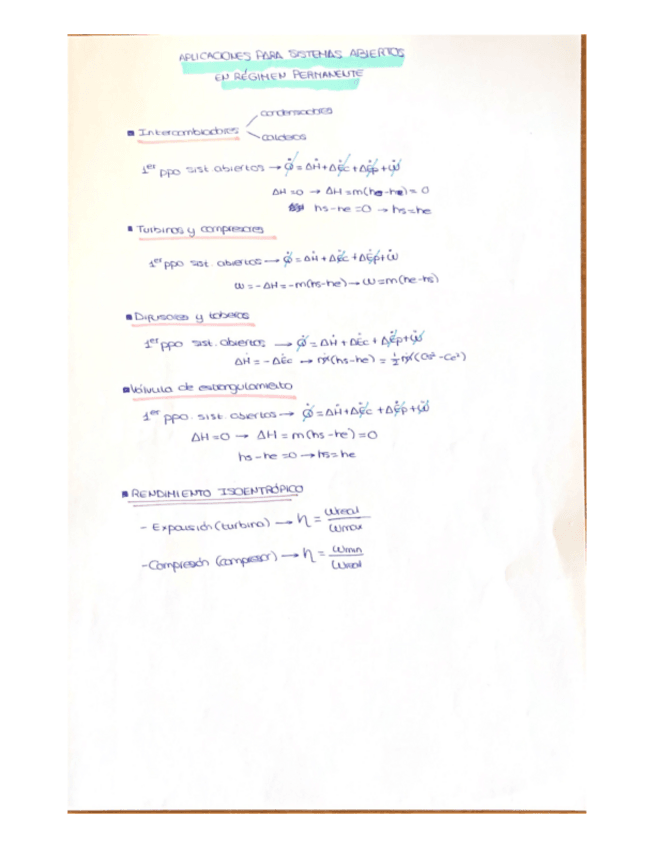 APLICACIONES PARA SISTEMAS ABIERTOS
EN RÉGIMEN PERMANENTE
condensadores
▪ Intercambiadores
calderas
1er ppo sist. abiertos → Q̇ = ΔḢ + ΔĖc + ΔĖp + Ẇ
ΔH = 0 → ΔH = m(hs - he) = 0
hs - he = 0 → hs = he
▪ Turbinas y compresores
1er ppo sist. abiertos → Q̇ = ΔḢ + ΔĖc + ΔĖp + Ẇ
W = -ΔH = -m(hs - he) → W = m(he - hs)
▪ Difusores y toberas
1er ppo sist. abiertos → Q̇ = ΔḢ + ΔĖc + ΔĖp + Ẇ
ΔḢ = -ΔĖc → ṁ(hs - he) = ½ ṁ(Cs² - Ce²)
▪ Válvula de estrangulamiento
1er ppo. sist. abiertos → Q̇ = ΔḢ + ΔĖc + ΔĖp + Ẇ
ΔH = 0 → ΔH = m(hs - he) = 0
hs - he = 0 → hs = he
▪ RENDIMIENTO ISOENTRÓPICO
- Expansión (turbina) → η = Wreal / Wmax
- Compresión (compresor) → η = Wmin / Wreal